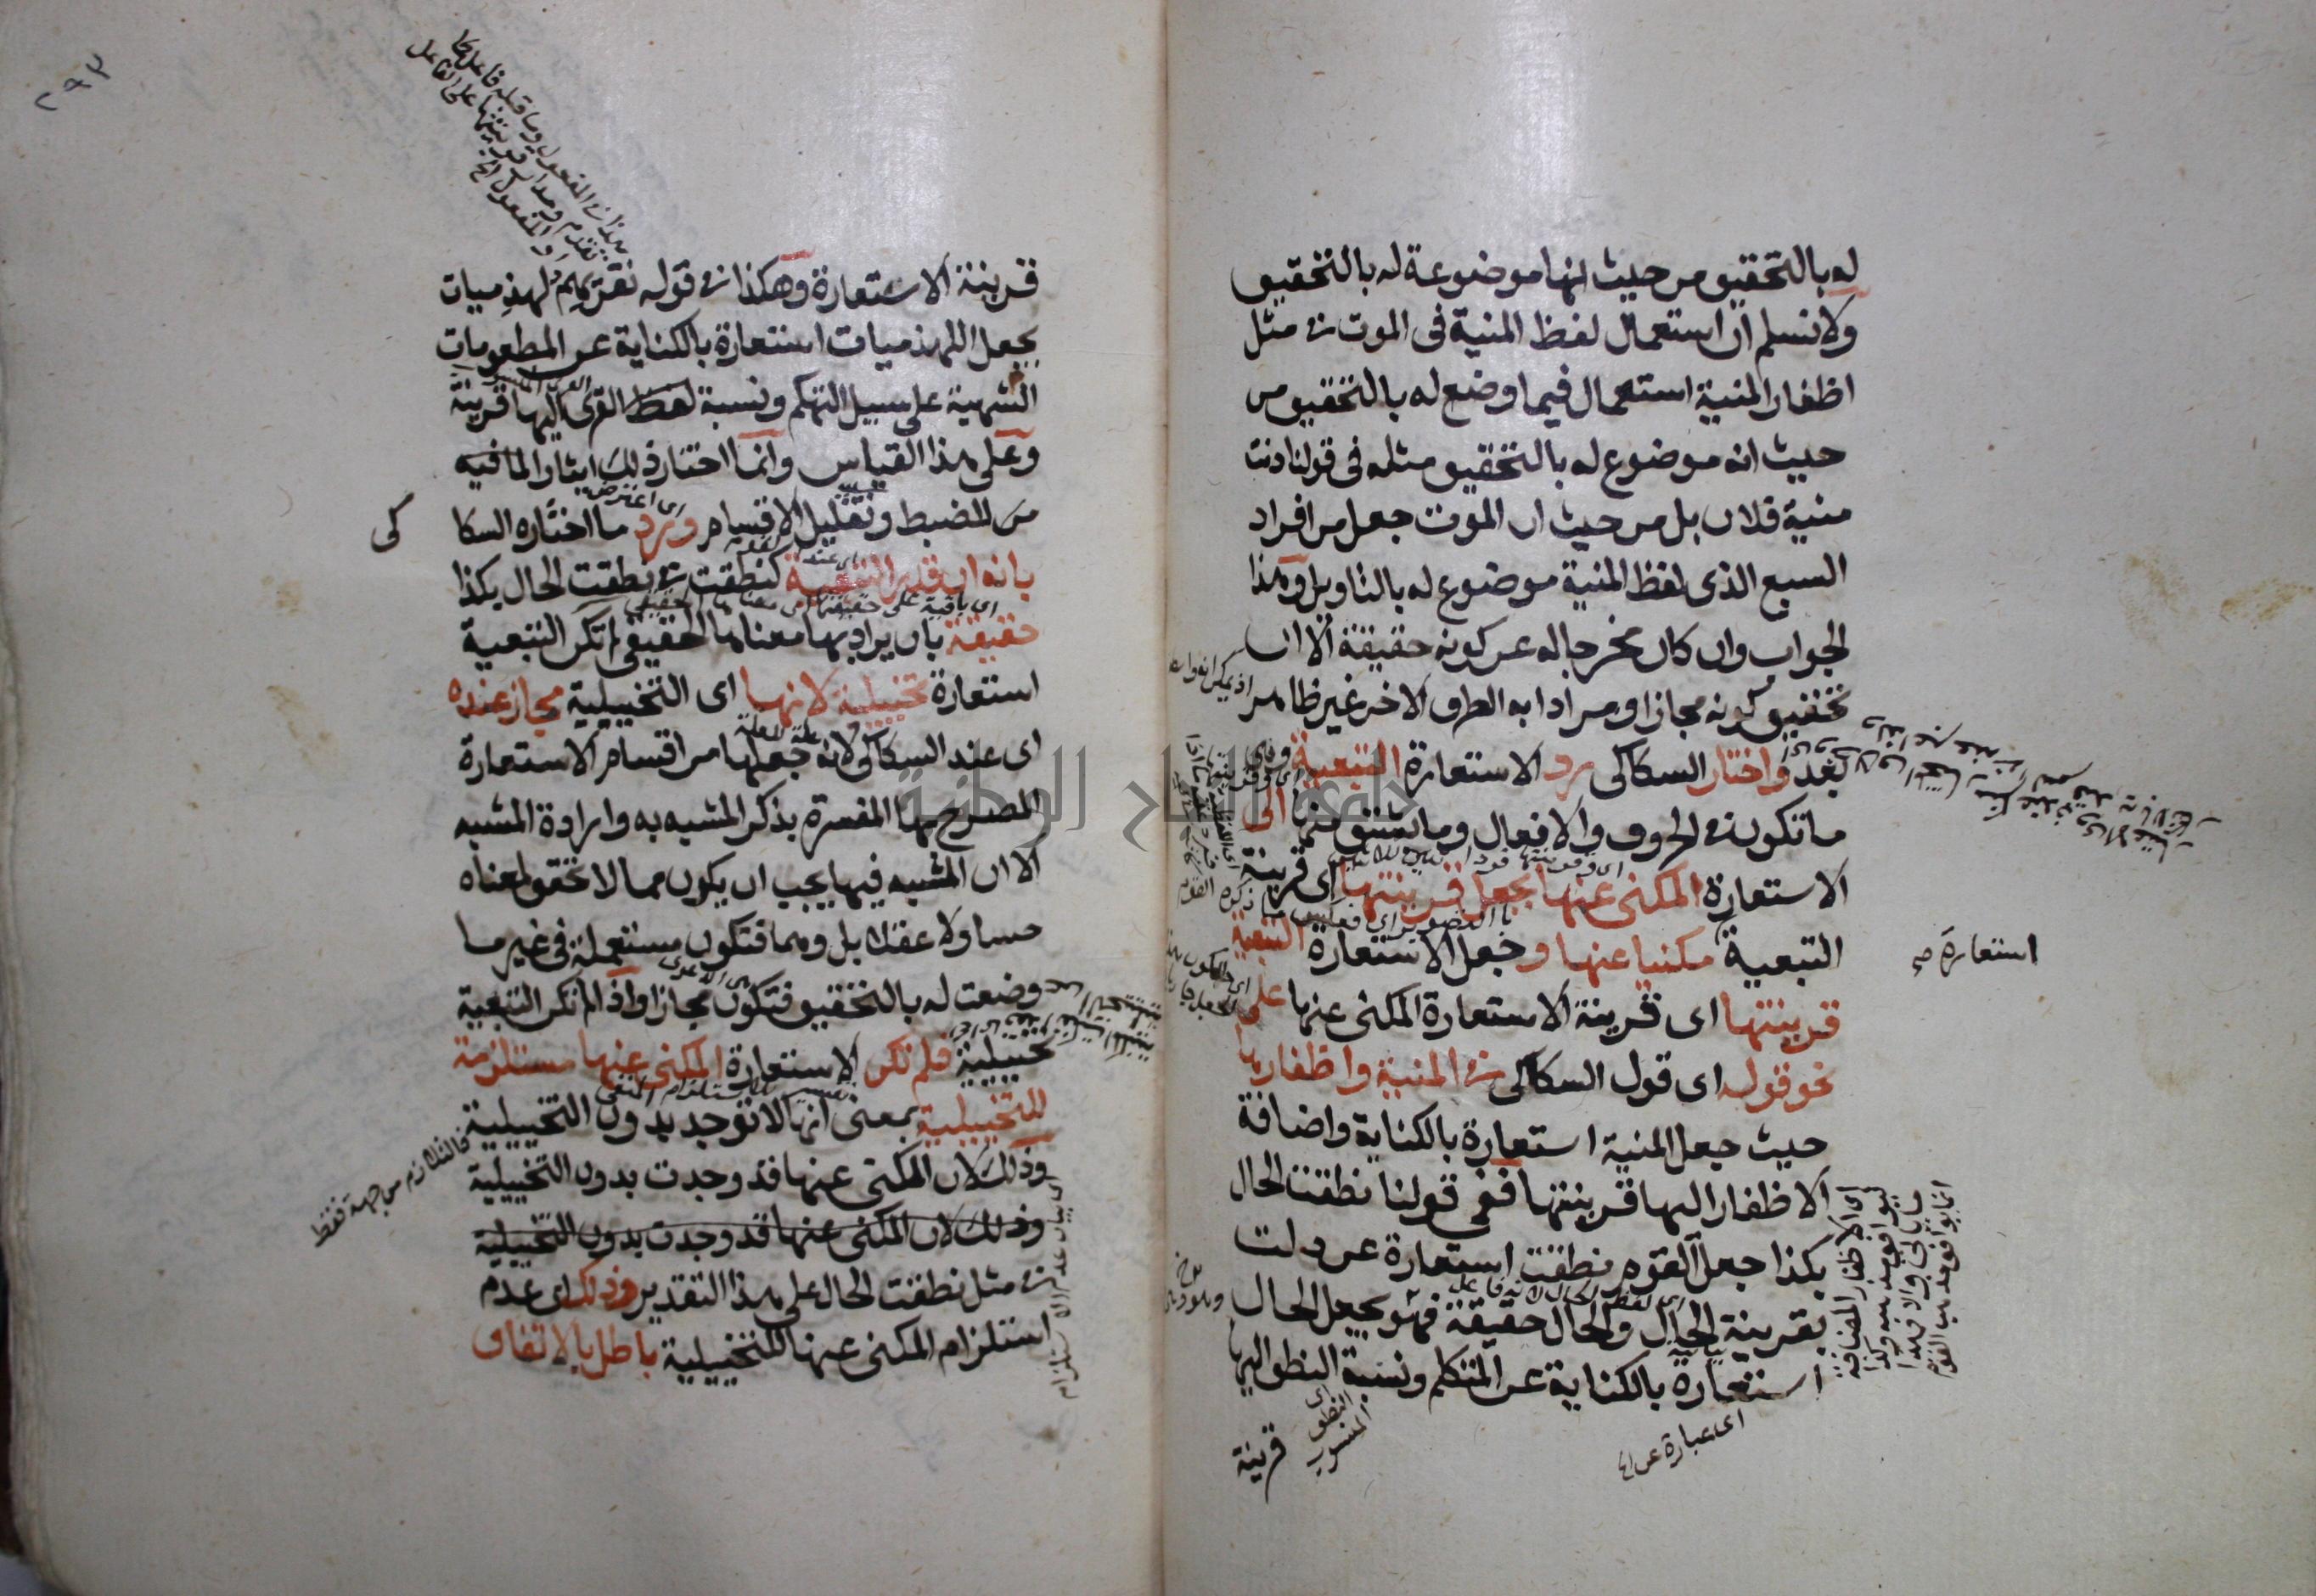 له بالتحقيق من حيث انها موضوعة له بالتحقيق
ولا نسلم ان استعمال لفظ المنية فى الموت فى مثل
اظفار المنية استعمال فيما وضع له بالتحقيق من
حيث انه موضوع له بالتحقيق مثله فى قولنا دنت
منية فلان بل من حيث ان الموت جعل من افراد
السبع الذى لفظ المنية موضوع له بالتاويل وهذا
الجواب وان كان مخرجا له عن كونه حقيقة الا ان
تحقيق كونه مجازا ومرادا به الطرف الاخر غير ظاهر
بعد واختار السكاكى رد الاستعارة التبعية وهى
ما تكون فى الحروف والافعال وما يشتق منها الى
الاستعارة المكنى عنها بجعل قرينتها اى قرينة
التبعية مكنيا عنها وجعل الاستعارة التبعية
استعارة صح
قرينتها اى قرينة الاستعارة المكنى عنها على
نحو قوله اى قول السكاكى فى المنية واظفارها
حيث جعل المنية استعارة بالكناية واضافة
الاظفار اليها قرينتها ففى قولنا نطقت الحال
بكذا جعل القوم نطقت استعارة عن دلت
بقرينة الحال والحال حقيقة فهو يجعل الحال
اى لفظ الحال لانه فاعل
استعارة بالكناية عن المتكلم ونسبة النطق اليها
اى عبارة عن
قرينة
٢٩٣
قرينة الاستعارة وهكذا فى قوله نقريهم لهذميات
بجعل اللهذميات استعارة بالكناية عن المطعومات
الشهية على سبيل التهكم ونسبة لفظ القرى اليها قرينة
وعلى هذا القياس وانما اختار ذلك ايثارا لما فيه
اى اعترض
من الضبط وتقليل الاقسام ورد ما اختاره السكا
كى
بانه ان قدر التبعية كنطقت فى نطقت الحال بكذا
اى باقية على حقيقتها اى معناها الحقيقى
حقيقة بان يراد بها معناها الحقيقى لم تكن التبعية
استعارة تخييلية لانها اى التخييلية مجاز عنده
اى عند السكاكى لانه جعلها من اقسام الاستعارة
المصرح بها المفسرة بذكر المشبه به وارادة المشبه
الا ان المشبه فيها يجب ان يكون مما لا تحقق لمعناه
حسا ولا عقلا بل وهما فتكون مستعملة فى غير ما
وضعت له بالتحقيق فتكون مجازا واذا لم تكن التبعية
تخييلية فلم تكن الاستعارة المكنى عنها مستلزمة
للتخييلية بمعنى انها لا توجد بدون التخييلية
فالتلازم من جهة فقط
وذلك لان المكنى عنها قد وجدت بدون التخييلية
وذلك لان المكنى عنها قد وجدت بدون التخييلية
فى مثل نطقت الحال على هذا التقدير وذلك اى عدم
استلزام المكنى عنها للتخييلية باطل بالاتفاق
جامعة النجاح الوطنية